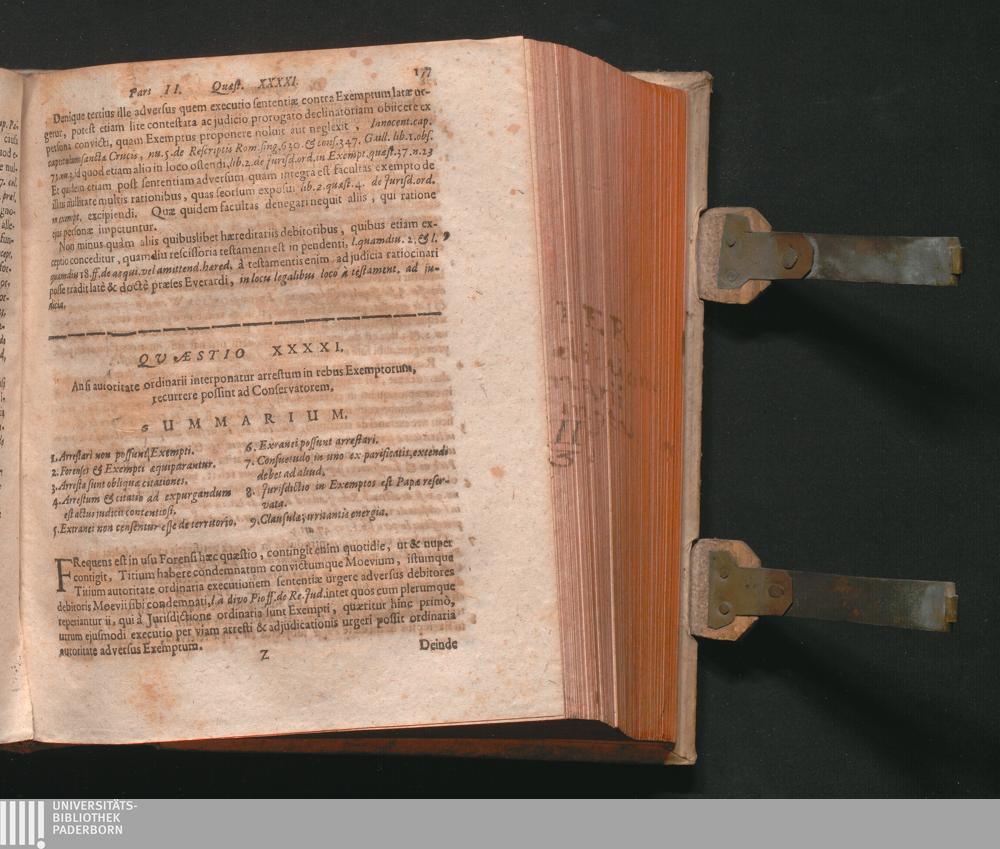 Pars II. Quæst. XXXXI. 177
Denique tertius ille adversus quem executio sententiæ contra Exemptum latæ ur-
getur, potest etiam lite contestata ac judicio prorogato declinatoriam obiicere ex
persona convicti, quam Exemptus proponere noluit aut neglexit, Innocent. cap.
capitulum sancta Crucis, nu. 5. de Rescriptis Rom. sing. 630. & cons. 347. Gail. lib. 1. obs.
73. nu. 3. id quod etiam alio in loco ostendi, lib. 2. de jurisd. ord. in Exempt. quæst. 37. n. 23
Et quidem etiam post sententiam adversum quam integra est facultas exempto de
illius nullitate multis rationibus, quas seorsum exposui lib. 2. quæst. 4. de Jurisd. ord.
in exempt. excipiendi. Quæ quidem facultas denegari nequit aliis, qui ratione
ejus personæ impetuntur.
Non minus quàm aliis quibuslibet hæreditariis debitoribus, quibus etiam ex-
ceptio conceditur, quamdiu rescissoria testamenti est in pendenti, l. quamdiu. 2. & l.
quamdiu 18. ff. de acqui. vel amittend. hæred. à testamentis enim, ad judicia ratiocinari
posse tradit latè & doctè præses Everardi, in locis legalibus loco à testament. ad ju-
dicia.
QVÆSTIO XXXXI.
An si autoritate ordinarii interponatur arrestum in rebus Exemptorum,
recurrere possint ad Conservatorem,
SUMMARIUM.
1. Arrestari non possunt Exempti.
2. Forenses & Exempti æquiparantur.
3. Arresta sunt obliquæ citationes.
4. Arrestum & citatio ad expurgandum
est actus judicii contentiosi.
5. Extranei non censentur esse de territorio.
6. Exranei possunt arrestari.
7. Consuetudo in uno ex parificatis, extendi
debet ad aliud.
8. Jurisdictio in Exemptos est Papæ reser-
vata.
9. Clausulæ, irritantis energia.
FRequens est in usu Forensi hæc quæstio, contingit enim quotidie, ut & nuper
contigit, Titium habere condemnatum convictumque Moevium, istumque
Titium autoritate ordinaria executionem sententiæ urgere adversus debitores
debitoris Moevii sibi condemnati, l. à divo Pio ff. de Re. Jud. inter quos cum plerumque
reperiantur ii, qui à Jurisdictione ordinaria sunt Exempti, quæritur hinc primò,
utrum ejusmodi executio per viam arresti & adjudicationis urgeri possit ordinaria
autoritate adversus Exemptum.
Z Deinde
UNIVERSITÄTS-
BIBLIOTHEK
PADERBORN